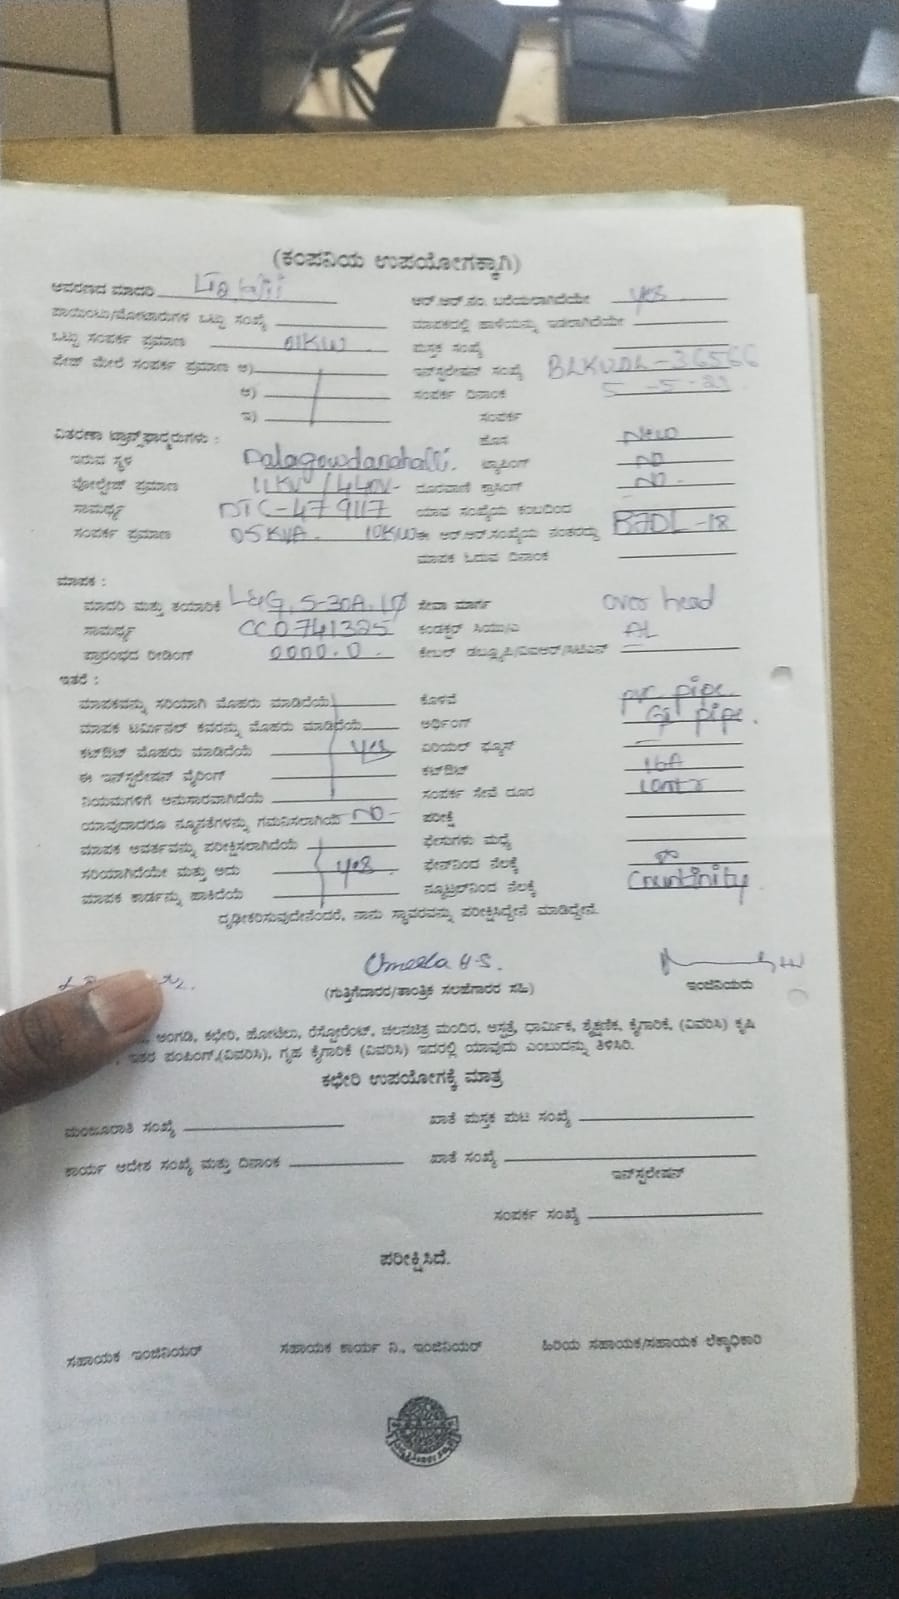 (ಕಂಪನಿಯ ಉಪಯೋಗಕ್ಕಾಗಿ)
ಆವರಣದ ಮಾದರಿ ಆರ್.ಆರ್.ನಂ. ಬರೆಯಲಾಗಿದೆಯೇ yes
ಪಾಯಿಂಟು/ಮೋಟಾರುಗಳ ಒಟ್ಟು ಸಂಖ್ಯೆ ಮಾಪಕದಲ್ಲಿ ಹಾಳೆಯನ್ನು ಇಡಲಾಗಿದೆಯೇ
ಒಟ್ಟು ಸಂಪರ್ಕ ಪ್ರಮಾಣ 01KW ಪುಸ್ತಕ ಸಂಖ್ಯೆ
ಪೇಜ್ ಮೇಲೆ ಸಂಪರ್ಕ ಪ್ರಮಾಣ ಅ) ಇನ್‌ಸ್ಟಲೇಷನ್ ಸಂಖ್ಯೆ BLKUDL-36566
ಆ) ಸಂಪರ್ಕ ದಿನಾಂಕ 5-5-21
ಇ) ಸಂಪರ್ಕ
ವಿತರಣಾ ಟ್ರಾನ್ಸ್‌ಫಾರ್ಮರುಗಳು : ಹೊಸ New
ಇರುವ ಸ್ಥಳ Dalagowdanahalli. ಟ್ಯಾಪಿಂಗ್ NO
ವೋಲ್ಟೇಜ್ ಪ್ರಮಾಣ 11KV/440V- ದೂರವಾಣಿ ಕ್ರಾಸಿಂಗ್ -NO-
ಸಾಮರ್ಥ್ಯ DTC-479117 ಯಾವ ಸಂಖ್ಯೆಯ ಕಂಬದಿಂದ
ಸಂಪರ್ಕ ಪ್ರಮಾಣ 05KVA. 10KW ಈ ಆರ್.ಆರ್.ಸಂಖ್ಯೆಯ ನಂತರದ್ದು BJDL-18
ಮಾಪಕ ಓದುವ ದಿನಾಂಕ
ಮಾಪಕ :
ಮಾದರಿ ಮತ್ತು ತಯಾರಿಕೆ L&G, 5-30A, 1Ø ಸೇವಾ ಮಾರ್ಗ over head
ಸಾಮರ್ಥ್ಯ CC0741325 ಕಂಡಕ್ಟರ್ ಸಿಯು/ಎ AL
ಪ್ರಾರಂಭದ ರೀಡಿಂಗ್ 0000.0 ಕೇಬಲ್ ಡಬ್ಲ್ಯೂಪಿ/ವಿಐಆರ್/ಸಿಟಿಎಸ್
ಇತರೆ :
ಮಾಪಕವನ್ನು ಸರಿಯಾಗಿ ಮೊಹರು ಮಾಡಿದೆಯೆ ಕೊಳವೆ pvc pipe
ಮಾಪಕ ಟರ್ಮಿನಲ್ ಕವರನ್ನು ಮೊಹರು ಮಾಡಿದೆಯೆ ಅರ್ಥಿಂಗ್ GI pipe.
ಕಟ್‌ಔಟ್ ಮೊಹರು ಮಾಡಿದೆಯೆ yes ಏರಿಯಲ್ ಫ್ಯೂಸ್
ಈ ಇನ್‌ಸ್ಟಲೇಷನ್ ವೈರಿಂಗ್ ಕಟ್‌ಔಟ್ 16A
ನಿಯಮಗಳಿಗೆ ಅನುಸಾರವಾಗಿದೆಯೆ ಸಂಪರ್ಕ ಸೇವೆ ದೂರ
ಯಾವುದಾದರೂ ನ್ಯೂನತೆಗಳನ್ನು ಗಮನಿಸಲಾಗಿದೆಯೆ NO- ಪರೀಕ್ಷೆ
ಮಾಪಕ ಆವರ್ತವನ್ನು ಪರೀಕ್ಷಿಸಲಾಗಿದೆಯೆ ಫೇಸುಗಳು ಮಧ್ಯೆ
ಸರಿಯಾಗಿದೆಯೇ ಮತ್ತು ಅದು yes. ಫೇಸ್‌ನಿಂದ ನೆಲಕ್ಕೆ
ಮಾಪಕ ಕಾರ್ಡನ್ನು ಹಾಕಿದೆಯೆ ನ್ಯೂಟ್ರಲ್‌ನಿಂದ ನೆಲಕ್ಕೆ
ದೃಢೀಕರಿಸುವುದೇನೆಂದರೆ, ನಾನು ಸ್ಥಾವರವನ್ನು ಪರೀಕ್ಷಿಸಿದ್ದೇನೆ ಮಾಡಿದ್ದೇನೆ.
(ಗುತ್ತಿಗೆದಾರರ/ತಾಂತ್ರಿಕ ಸಲಹೆಗಾರರ ಸಹಿ) ಇಂಜಿನಿಯರು
ಅಂಗಡಿ, ಕಛೇರಿ, ಹೋಟೆಲು, ರೆಸ್ಟೋರೆಂಟ್, ಚಲನಚಿತ್ರ ಮಂದಿರ, ಆಸ್ಪತ್ರೆ, ಧಾರ್ಮಿಕ, ಶೈಕ್ಷಣಿಕ, ಕೈಗಾರಿಕೆ, (ವಿವರಿಸಿ) ಕೃಷಿ
ಇತರ ಪಂಪಿಂಗ್,(ವಿವರಿಸಿ), ಗೃಹ ಕೈಗಾರಿಕೆ (ವಿವರಿಸಿ) ಇದರಲ್ಲಿ ಯಾವುದು ಎಂಬುದನ್ನು ತಿಳಿಸಿರಿ.
ಕಛೇರಿ ಉಪಯೋಗಕ್ಕೆ ಮಾತ್ರ
ಮಂಜೂರಾತಿ ಸಂಖ್ಯೆ ಖಾತೆ ಪುಸ್ತಕ ಪುಟ ಸಂಖ್ಯೆ
ಕಾರ್ಯ ಆದೇಶ ಸಂಖ್ಯೆ ಮತ್ತು ದಿನಾಂಕ ಖಾತೆ ಸಂಖ್ಯೆ
ಇನ್‌ಸ್ಟಲೇಷನ್
ಸಂಪರ್ಕ ಸಂಖ್ಯೆ
ಪರೀಕ್ಷಿಸಿದೆ.
ಸಹಾಯಕ ಇಂಜಿನಿಯರ್ ಸಹಾಯಕ ಕಾರ್ಯ ನಿ., ಇಂಜಿನಿಯರ್ ಹಿರಿಯ ಸಹಾಯಕ/ಸಹಾಯಕ ಲೆಕ್ಕಾಧಿಕಾರಿ